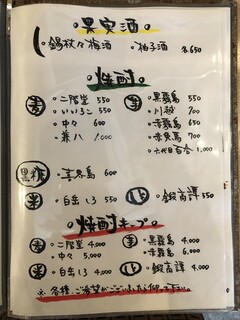 果実酒
錫杖々梅酒 ・柚子酒 各650
焼酎
麦 ・二階堂 550
・いいちこ 550
・中々 600
・兼八 1,000
芋 ・黒霧島 550
・川越 700
・赤霧島 650
・赤兎馬 700
・六代目百合 1,000
黒糖 ・喜界島 600
米 ・白岳しろ 550
しそ ・鍛高譚 550
焼酎キープ
麦 ・二階堂 4,000
・中々 5,000
米 ・白岳しろ 4,000
芋 ・黒霧島 4,000
・赤霧島 5,000
しそ ・鍛高譚 4,000
※各種、ご希望がございましたら